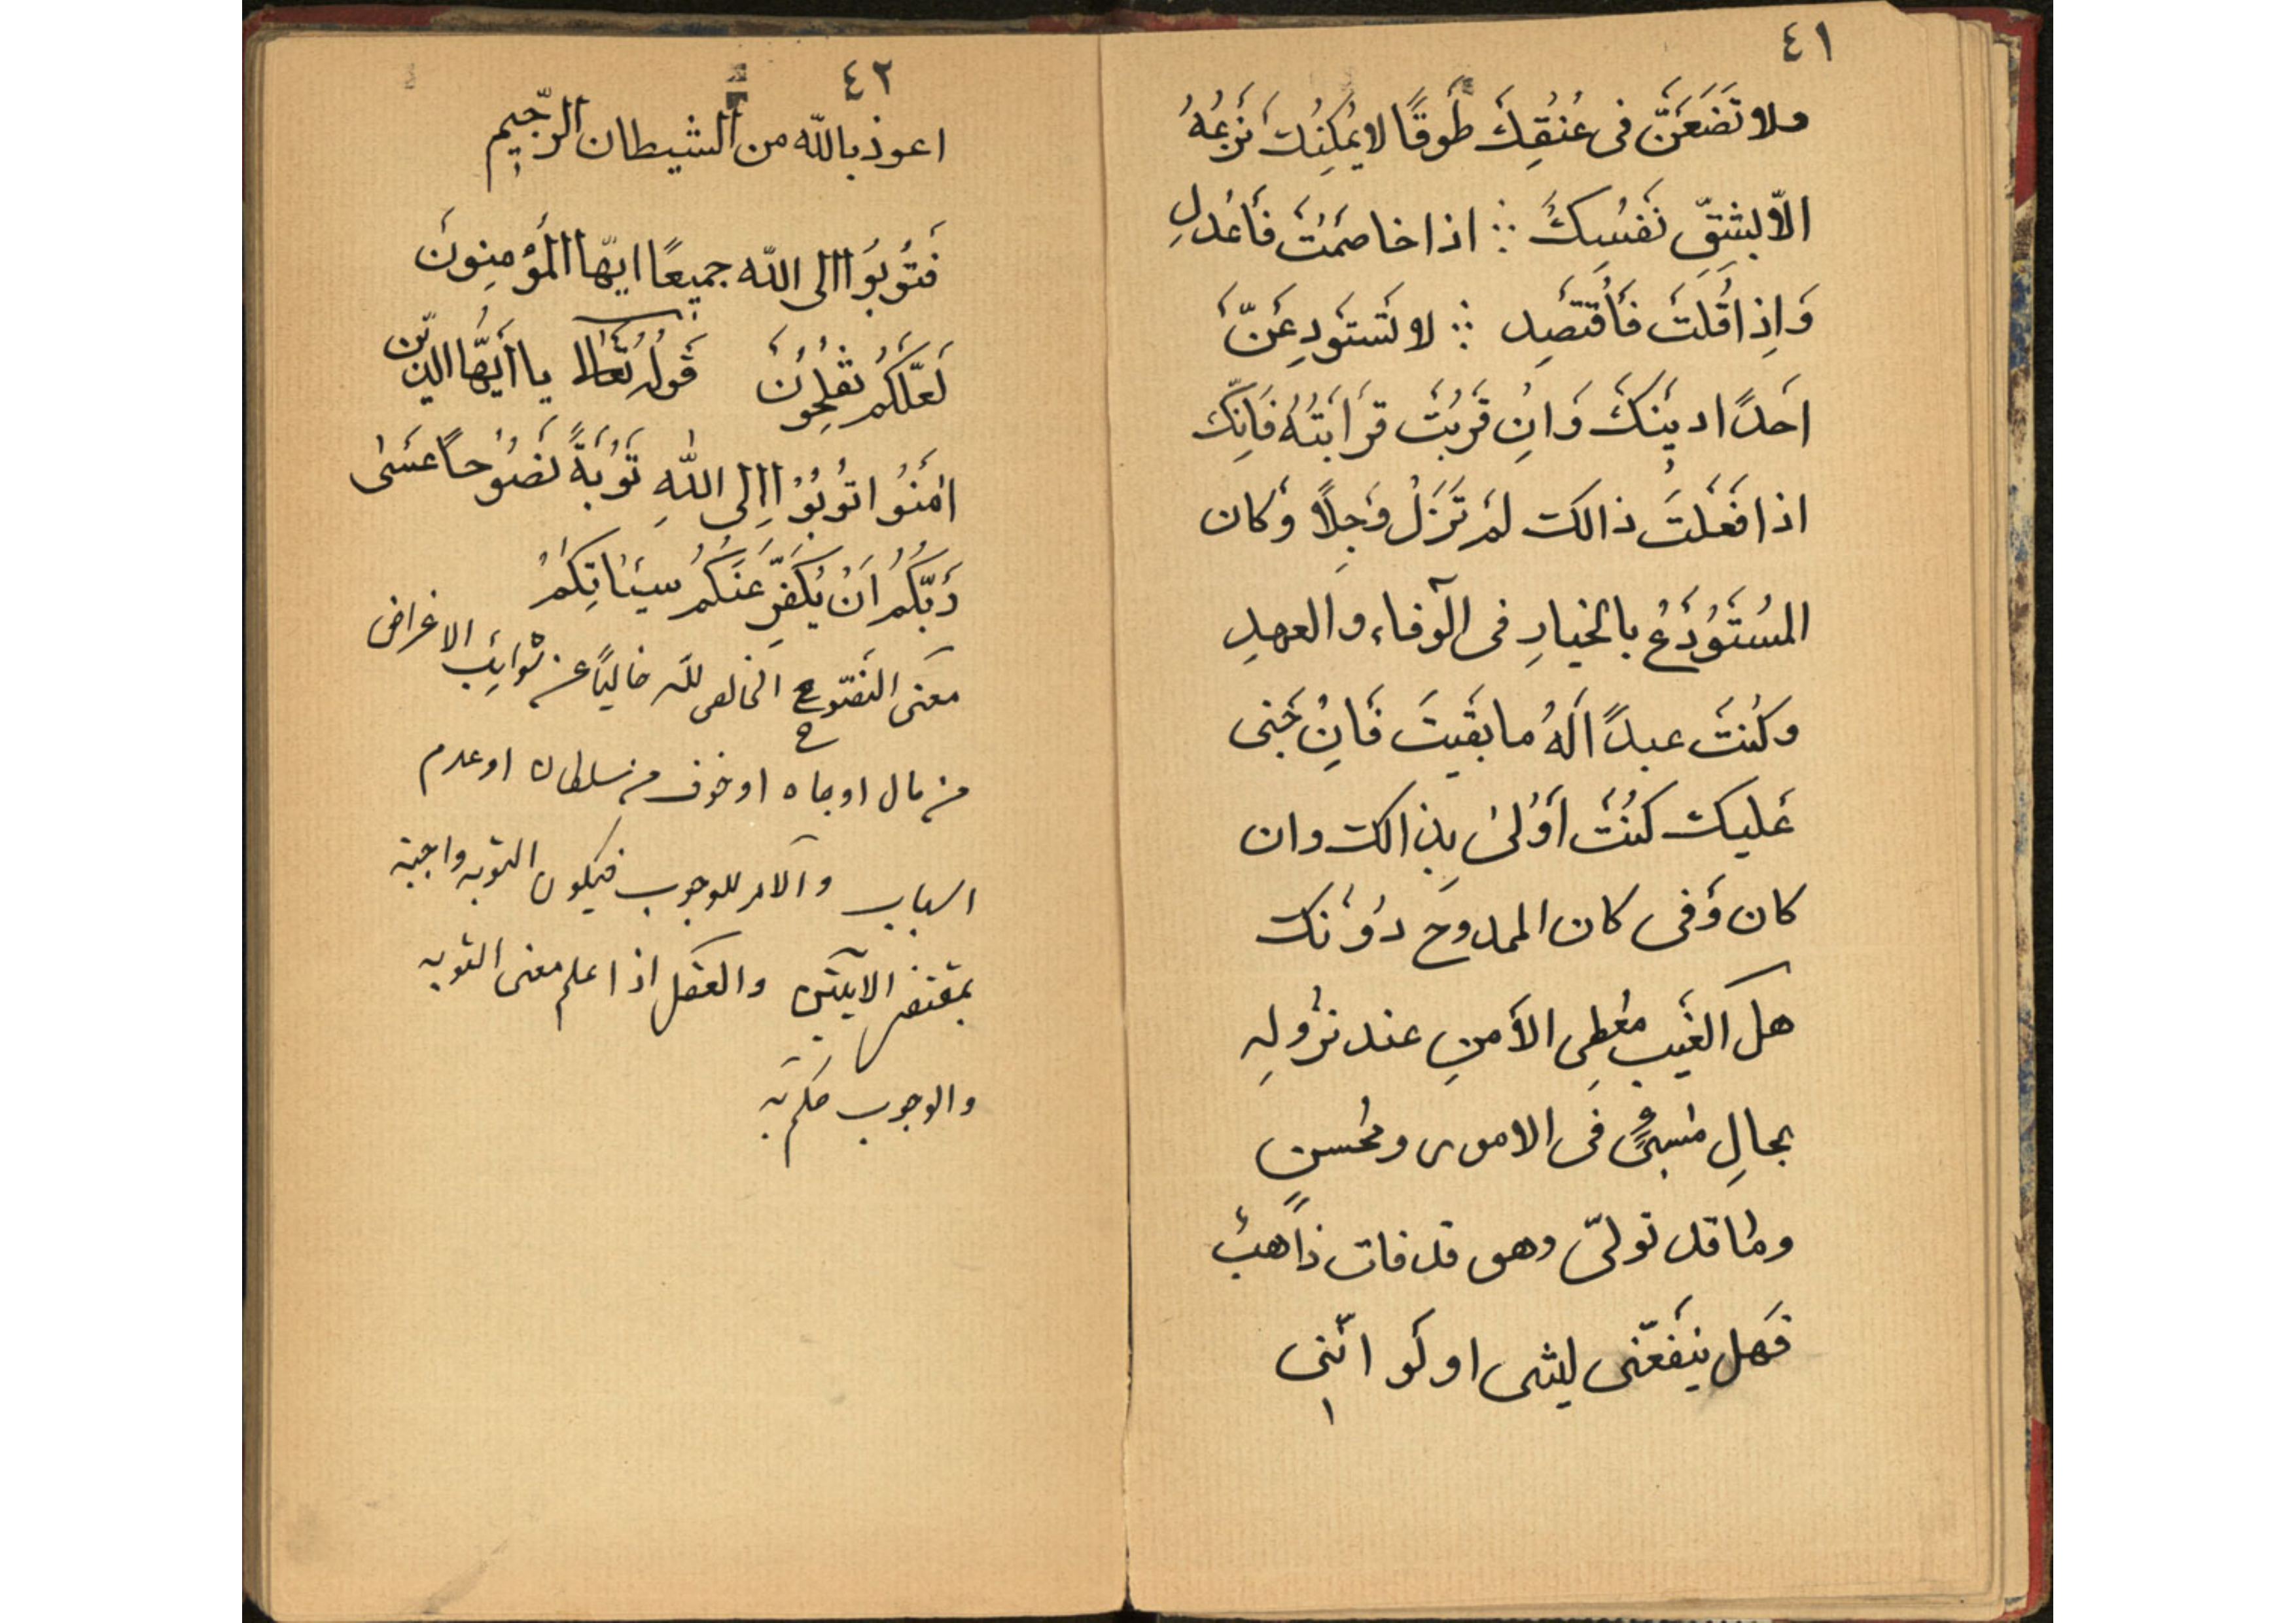 ٤١
ولا تَضَعَنَّ فى عُنُقِكَ طَوقًا لا يُمكِنُكَ نَزعُهُ
الّا بِشِقِّ نَفْسِكَ ∴ اذا خاصَمْتَ فَاعْدِلِ
وَاِذا قُلتَ فَاُقْتَصِد ∴ لا تَستَودِعَنَّ
احَدًا دينَكَ وَانِ قَرُبَتْ قَرابَتُهُ فَاِنَّكَ
اذا فَعَلْتَ ذالك لَمْ تَزَلْ وَجِلًا وَكان
المُستَوْدَعُ بالخيارِ فى الوَفاء والعهدِ
وكُنتَ عبدًا لَهُ ما بَقَيتَ فَاِنْ جَنى
عَليك كُنْتَ اَوْلىٰ بِذالك وان
كان وَفى كان الممدوحَ دُوْنَك
هل الغَيب مُعْطِى الأَمنِ عند نزُولِهِ
بحالِ مُسِيٍّ فى الامور ومُحسنٍ
وما قد تولّى وهو قد فات ذاهبٌ
فَهل ينفَعَنّى ليتنى او لَو انّنى
٤٢
اعوذ بالله من الشيطان الرّجيم
فَتُوْبُوْا الى الله جميعًا ايّها المُؤمِنِونَ
لَعَلَّكُمْ تُفلِحُوْنَ قَولُهُ تَعالٰى يا اَيُّها الذين
اٰمَنُوا تُوْبُوْا اِلى اللهِ تَوْبَةً نَصُوْحاً عَسىٰ
رَبُّكُمْ اَنْ يُكَفِّرَ عَنْكُمْ سيئاتِكُمْ
معنى النصّوح الخالص للّه خاليًا عن شوايب الاغراض
من مال او جاه او خوف من سلطان او عدم
اسباب والامر للوجوب فيكون التوبه واجبة
بمقتضى الايتين والعقل اذا علم معنى التوبه
والوجوب حكم به